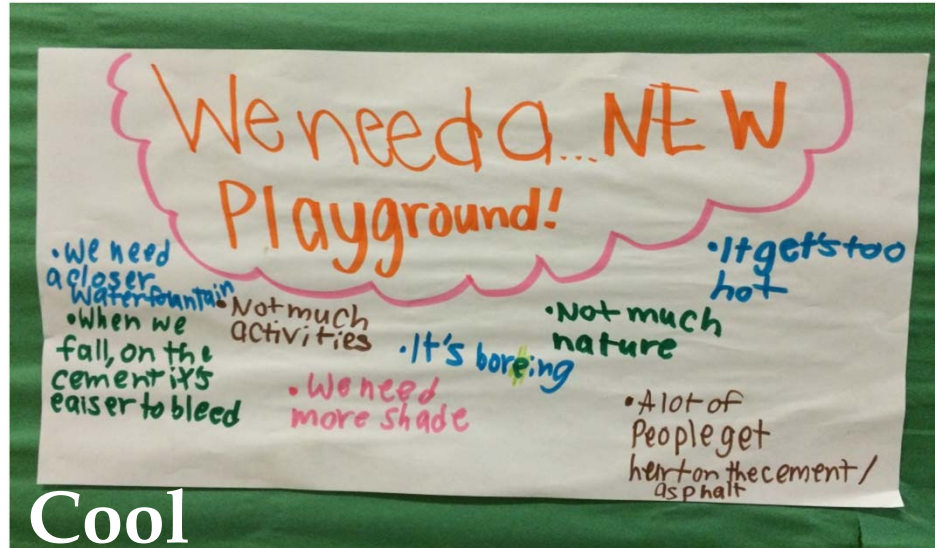 We need a... NEW
Playground!
•We need
a closer
Waterfountain
•When we
fall, on the
cement it's
eaiser to bleed
•Not much
activities
•We need
more shade
•It's boreing
•Not much
nature
•It get's too
hot
•A lot of
People get
herton the cement /
asphalt
Cool